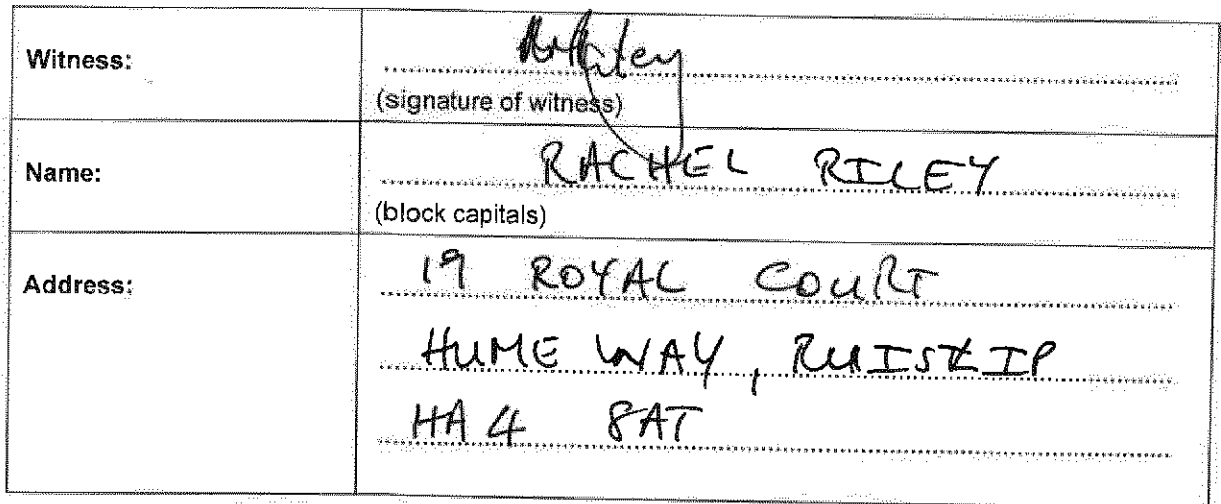 Witness:
(signature of witness)
Name:
RACHEL RILEY
(block capitals)
Address:
19 ROYAL COURT
HUME WAY, RUISKIP
HA4 8AT